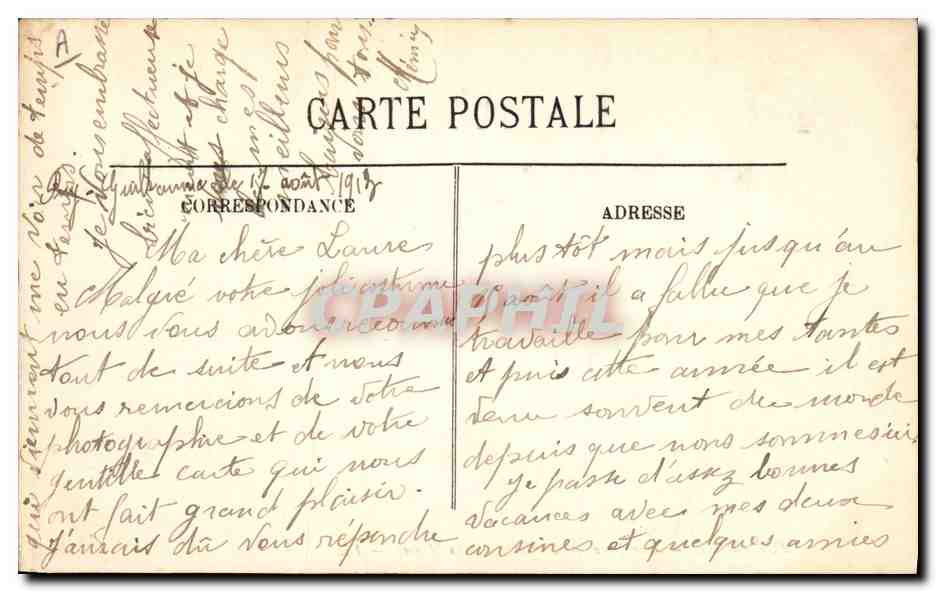 CARTE POSTALE
17 août 1913
CORRESPONDANCE
ADRESSE
Ma chère Laure
Malgré votre joli costume
nous vous avons reconnue
tout de suite et nous
vous remercions de votre
photographie et de votre
gentille carte qui nous
ont fait grand plaisir.
J'aurais dû vous répondre
plus tôt mais jusqu'au
août il a fallu que je
travaille pour mes tantes
et puis cette année il est
venu souvent du monde
depuis que nous sommes ici
Je passe d'assez bonnes
vacances avec mes deux
cousines et quelques amies
qui viennent me voir de temps
en temps.
Je vous embrasse
bien affectueuse
ment et je
vous charge
de mes
meilleurs
pour
vous tous
A
CPAPHIL